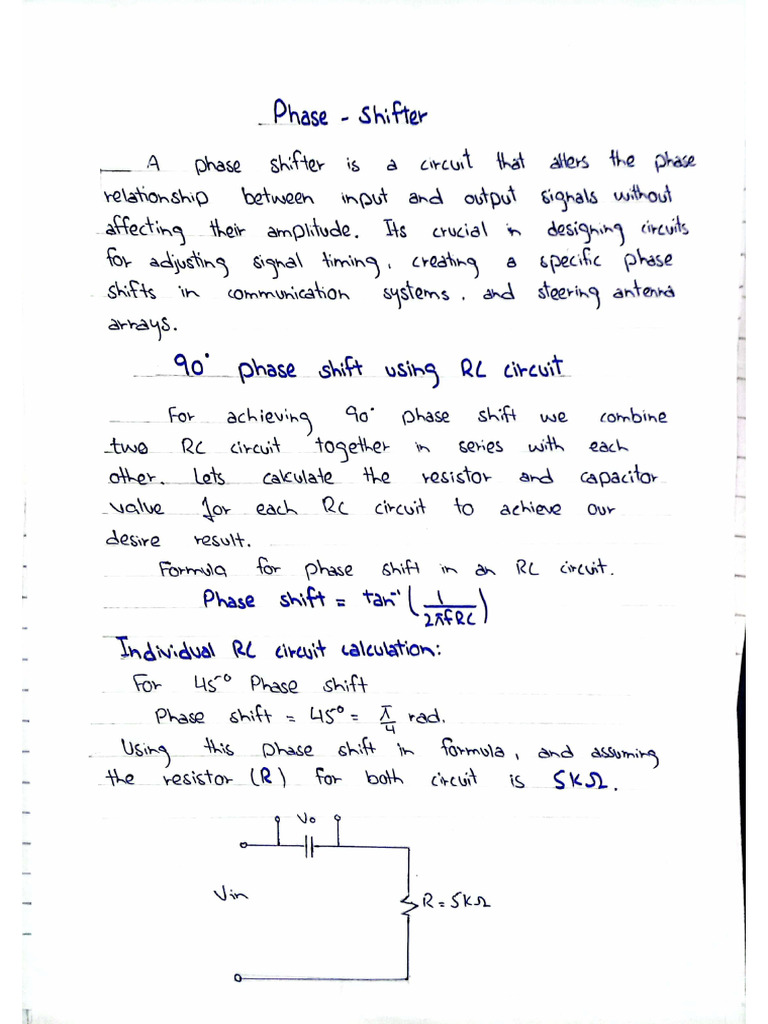 Phase - Shifter
A phase shifter is a circuit that alters the phase
relationship between input and output signals without
affecting their amplitude. Its crucial in designing circuits
for adjusting signal timing, creating a specific phase
shifts in communication systems, and steering antenna
arrays.
90° phase shift using RC circuit
For achieving 90° phase shift we combine
two RC circuit together in series with each
other. Lets calculate the resistor and capacitor
value for each RC circuit to achieve our
desire result.
Formula for phase shift in an RC circuit.
Phase shift = tan⁻¹ (1/2πfRC)
Individual RC circuit calculation:
For 45° Phase shift
Phase shift = 45° = π/4 rad.
Using this phase shift in formula, and assuming
the resistor (R) for both circuit is 5KΩ.
Vo
Vin
R = 5KΩ